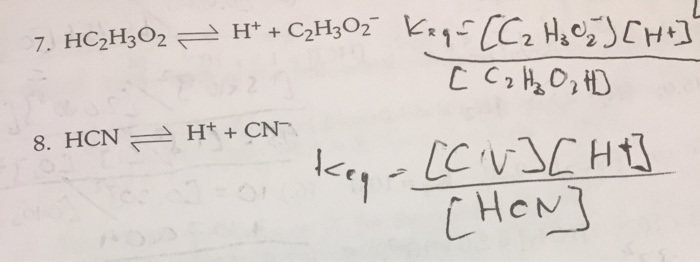 7. HC₂H₃O2 ⇌ H⁺ + C₂H₃O₂⁻ Keq = [C₂H₃O₂⁻][H+]
[C₂H₃O₂H]
8. HCN ⇌ H⁺ + CN⁻
Keq = [CN][H+]
[HCN]